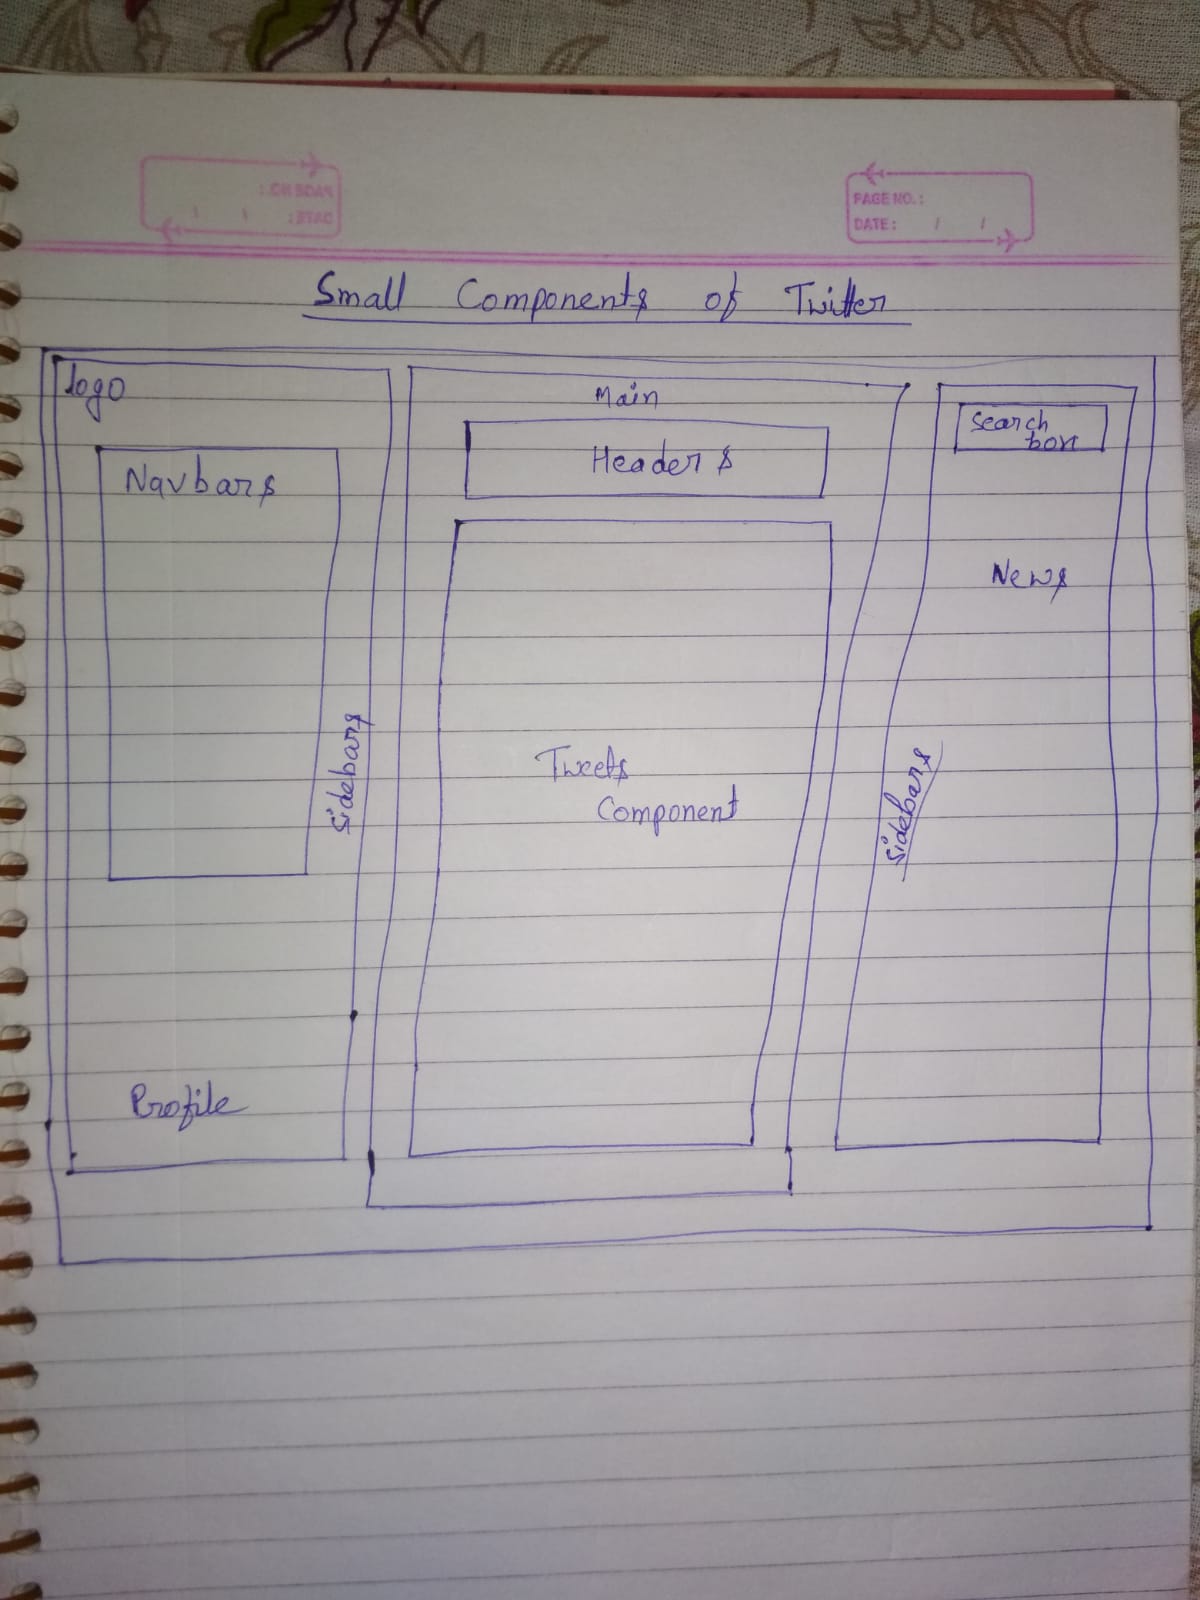 PAGE NO.:
DATE: / /
Small Components of Twitter
logo
Navbars
Sidebars
Profile
Main
Headers
Tweets
Component
Search
box
News
Sidebars